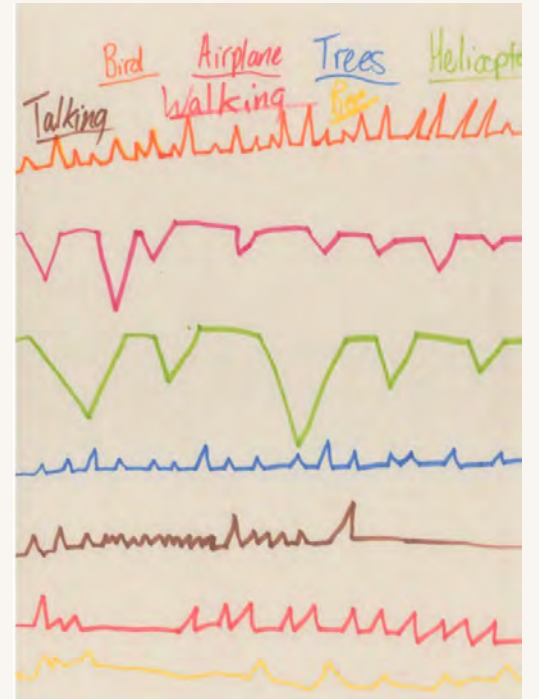 Bird Airplane Trees Helicopte
Talking Walking